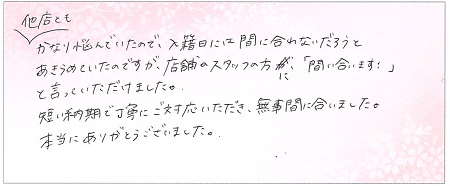 他店とも
かなり悩んでいたので、入籍日には間に合わないだろうと
あきらめていたのですが、店舗のスタッフの方に、「間い合います!」
と言っていただけました。
短い納期で丁寧にご対応いただき、無事間に合いました。
本当にありがとうございました。